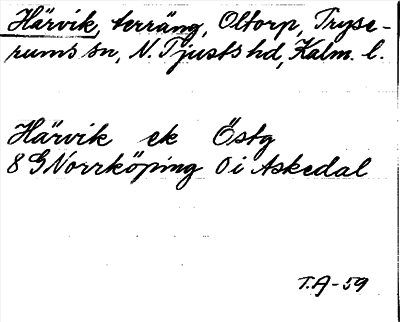 Härvik, terräng, Oltorp, Tryse-
rums sn, N. Tjusts hd, Kalm. l.
Härvik ek Östg
8 G Norrköping 0 i Askedal
T.A-59